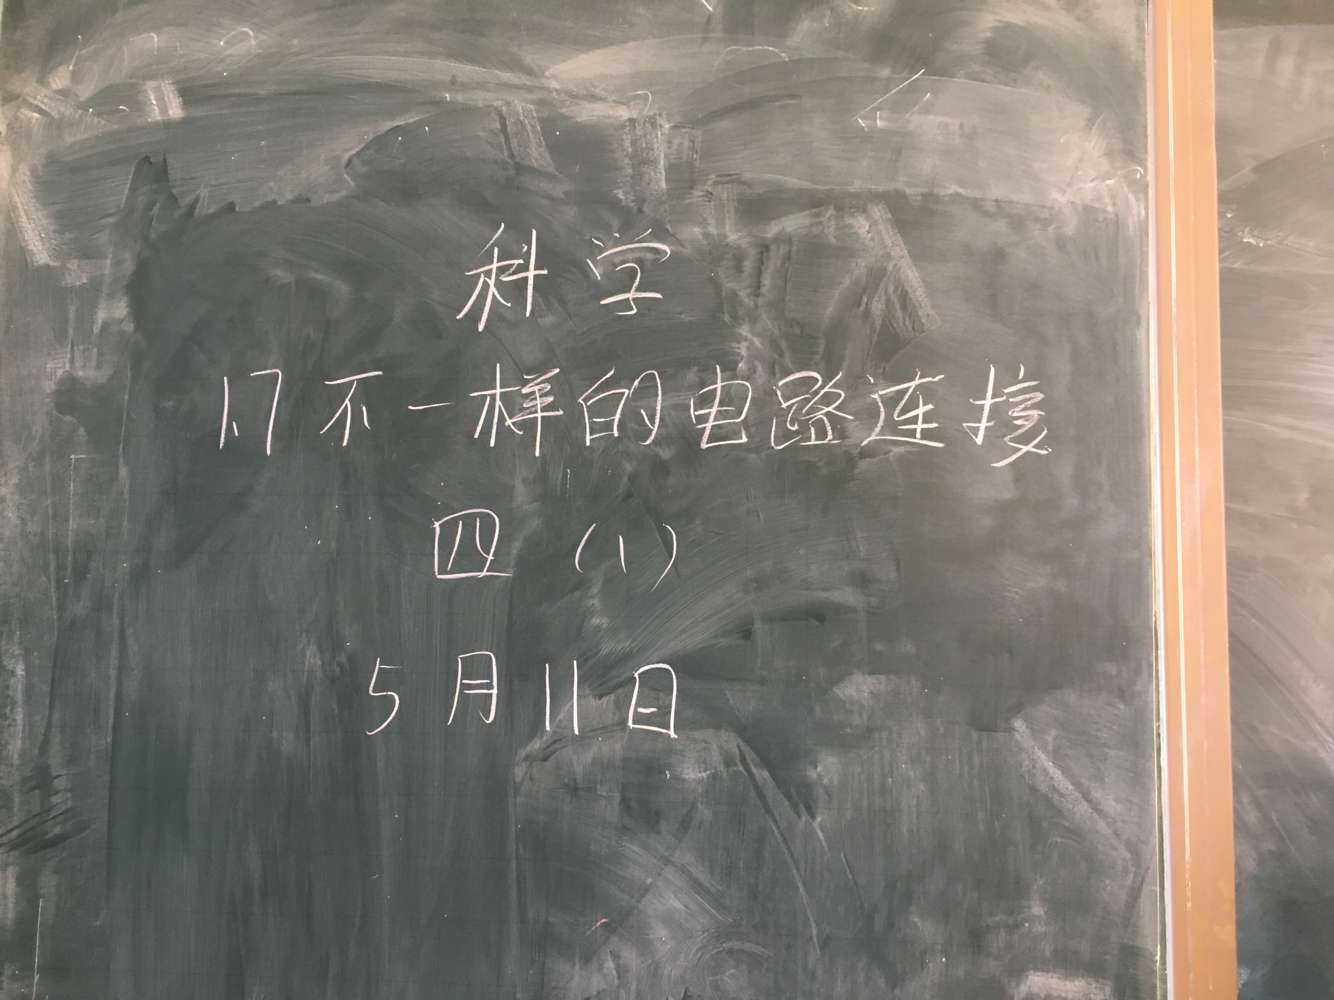 科学
1.7不一样的电路连接
四（1）
5月11日